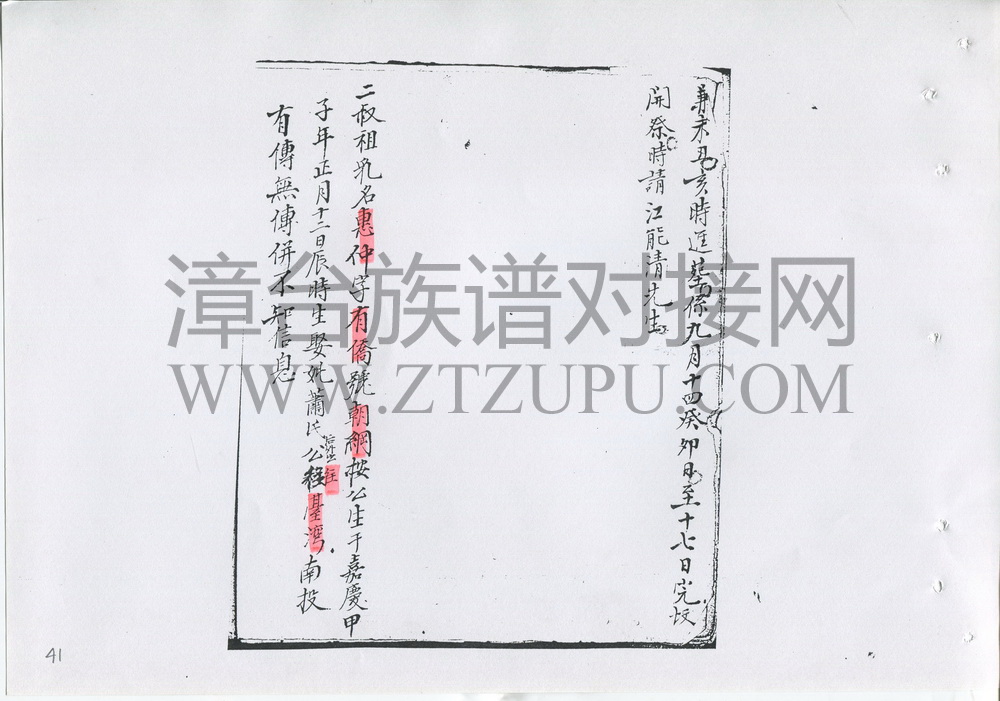 兼未丑亥時進墓係九月十四癸卯日至十七日完坟
開祭時請江能清先生
二叔祖乳名惠仲字有僑號朝綱按公生于嘉慶甲
子年正月十二日辰時生娶妣蕭氏公往臺灣南投
有傳無傳併不知信息
漳台族谱对接网
WWW.ZTZUPU.COM
41